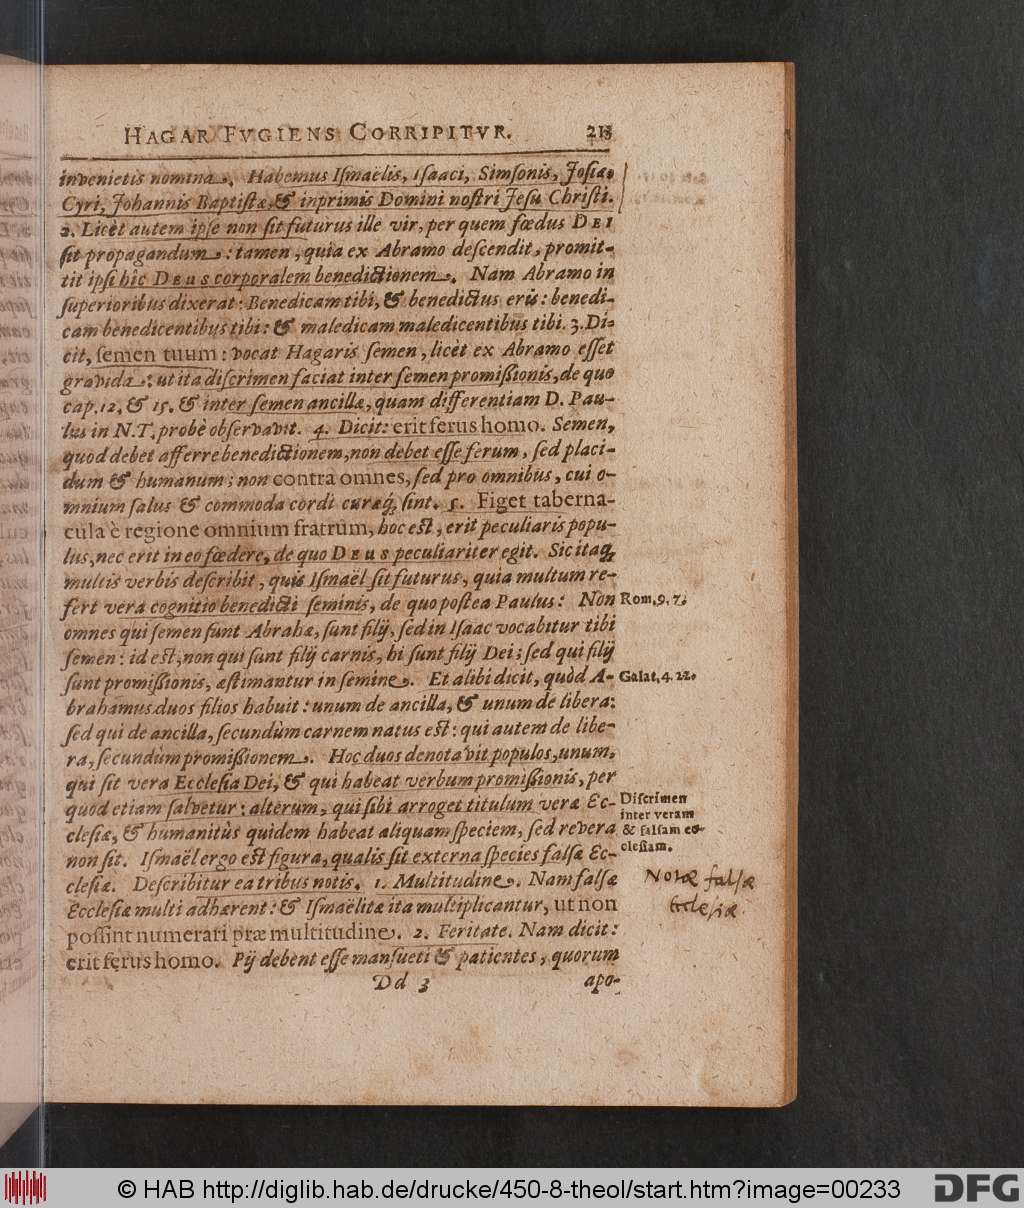 HAGAR FVGIENS CORRIPITVR. 213
invenietis nomina. Habemus Iſmaëlis, Iſaaci, Simſonis, Joſiæ,
Cyri, Johannis Baptiſtæ, & inprimis Domini noſtri Jeſu Chriſti.
2. Licèt autem ipſe non ſit futurus ille vir, per quem fœdus DEI
ſit propagandum: tamen, quia ex Abramo deſcendit, promit-
tit ipſi hîc DEUS corporalem benedictionem. Nam Abramo in
ſuperioribus dixerat: Benedicam tibi, & benedictus eris: benedi-
cam benedicentibus tibi: & maledicam maledicentibus tibi. 3. Di-
cit, ſemen tuum: vocat Hagaris ſemen, licèt ex Abramo eſſet
gravida: ut ita diſcrimen faciat inter ſemen promiſſionis, de quo
cap. 12. & 15. & inter ſemen ancillæ, quam differentiam D. Pau-
lus in N.T. probè obſervavit. 4. Dicit: erit ferus homo. Semen,
quod debet afferre benedictionem, non debet eſſe ferum, ſed placi-
dum & humanum; non contra omnes, ſed pro omnibus, cui o-
mnium ſalus & commoda cordi curæq́; ſint. 5. Figet taberna-
cula è regione omnium fratrum, hoc eſt, erit peculiaris popu-
lus, nec erit in eo fœdere, de quo DEUS peculiariter egit. Sic itaq́;
multis verbis deſcribit, quis Iſmaël ſit futurus, quia multum re-
fert vera cognitio benedicti ſeminis, de quo poſtea Paulus: Non
Rom. 9. 7.
omnes qui ſemen ſunt Abrahæ, ſunt filij, ſed in Iſaac vocabitur tibi
ſemen: id eſt, non qui ſunt filij carnis, hi ſunt filij Dei; ſed qui filij
ſunt promiſſionis, æſtimantur in ſemine. Et alibi dicit, quòd A-
Galat. 4. 22.
brahamus duos filios habuit: unum de ancilla, & unum de libera:
ſed qui de ancilla, ſecundùm carnem natus eſt: qui autem de libe-
ra, ſecundùm promiſſionem. Hoc duos denotavit populos, unum,
qui ſit vera Eccleſia Dei, & qui habeat verbum promiſſionis, per
quod etiam ſalvetur: alterum, qui ſibi arroget titulum veræ Ec-
Diſcrimen
inter veram
& falſam ec-
cleſiam.
cleſiæ, & humanitùs quidem habeat aliquam ſpeciem, ſed revera
non ſit. Iſmaël ergo eſt figura, qualis ſit externa ſpecies falſæ Ec-
cleſiæ. Deſcribitur ea tribus notis. 1. Multitudine. Nam falſæ
Notæ falſæ
Eccleſiæ
Eccleſiæ multi adhærent: & Iſmaëlitæ ita multiplicantur, ut non
poſſint numerari præ multitudine. 2. Feritate. Nam dicit:
erit ferus homo. Pij debent eſſe manſueti & patientes, quorum
Dd 3 apo-
© HAB http://diglib.hab.de/drucke/450-8-theol/start.htm?image=00233
DFG